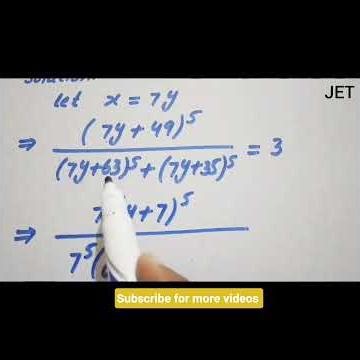 JET
let x = 7y
⇒ (7y + 49)^5 / (7y+63)^5 + (7y+35)^5 = 3
⇒ 7 y + 7)^5 / 7^5(
Subscribe for more videos